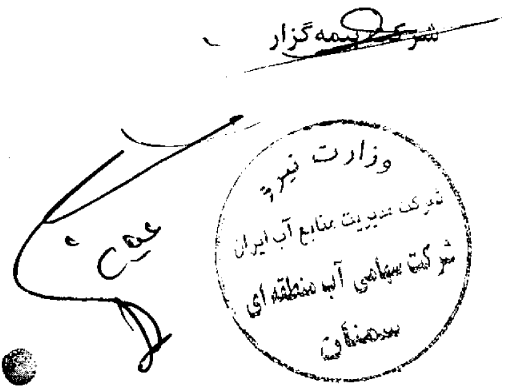 شرکت بیمه‌گزار
وزارت نیرو
شرکت مدیریت منابع آب ایران
شرکت سهامی آب منطقه‌ای
سمنان